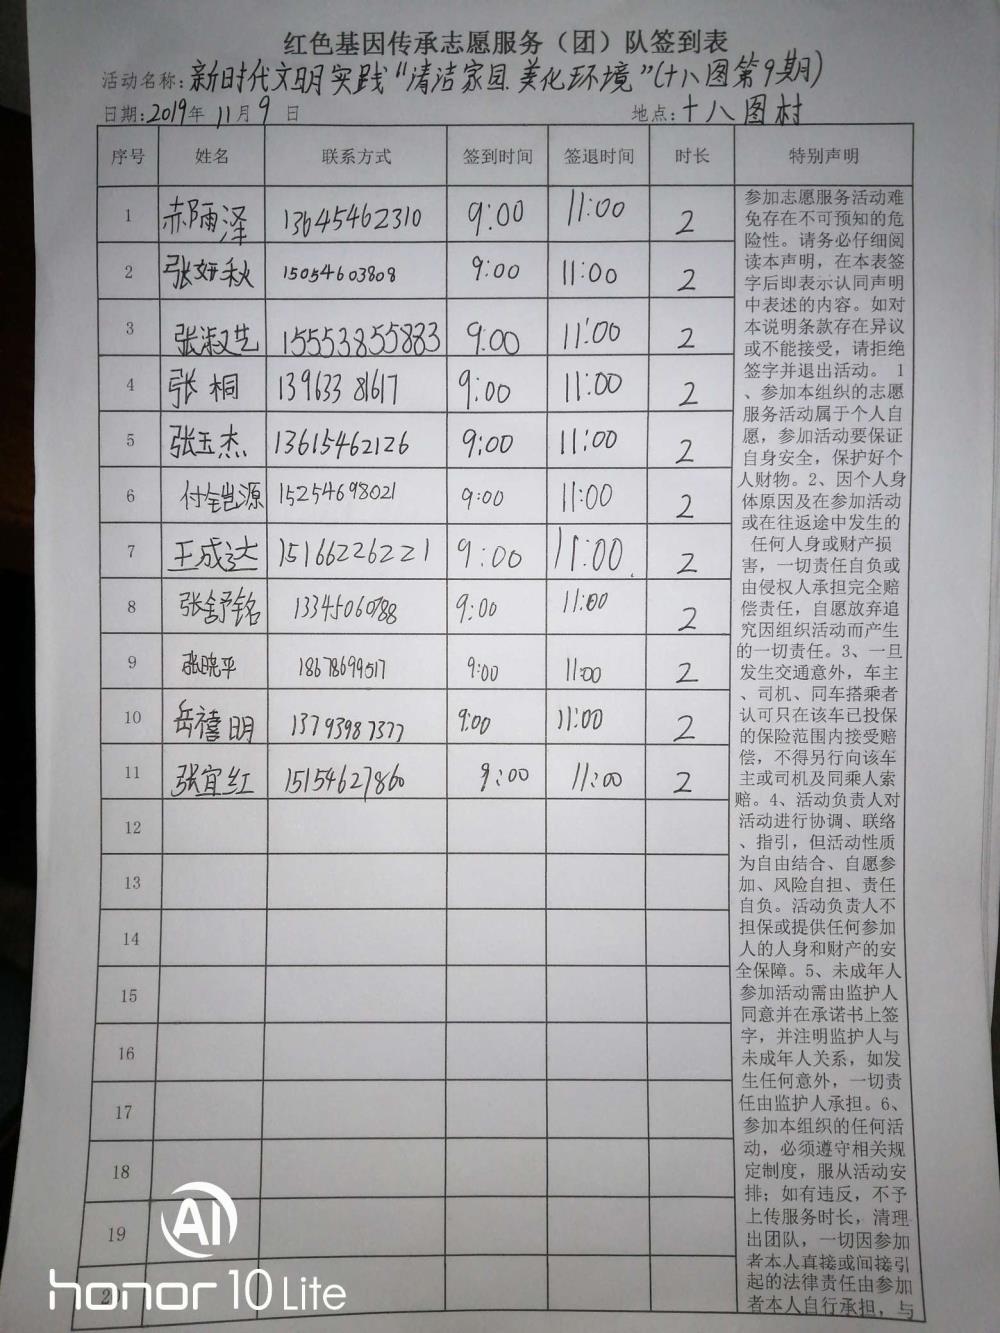 红色基因传承志愿服务（团）队签到表
活动名称：新时代文明实践“清洁家园.美化环境”(十八图第9期)
日期：2019年 11月 9 日 地点：十八图村
序号 姓名 联系方式 签到时间 签退时间 时长 特别声明
1 郝雨泽 13645462310 9:00 11:00 2
2 张妍秋 15054603808 9:00 11:00 2
3 张淑艺 15553855883 9:00 11:00 2
4 张桐 13963381617 9:00 11:00 2
5 张玉杰 13615462126 9:00 11:00 2
6 付铠源 15254698021 9:00 11:00 2
7 王成达 15166226221 9:00 11:00 2
8 张舒铭 13345060788 9:00 11:00 2
9 张晓平 18678699517 9:00 11:00 2
10 岳禧明 13793987377 9:00 11:00 2
11 张宜红 15154627860 9:00 11:00 2
12
13
14
15
16
17
18
19
20
参加志愿服务活动难
免存在不可预知的危
险性。请务必仔细阅
读本声明，在本表签
字后即表示认同声明
中表述的内容。如对
本说明条款存在异议
或不能接受，请拒绝
签字并退出活动。 1
、参加本组织的志愿
服务活动属于个人自
愿，参加活动要保证
自身安全，保护好个
人财物。2、因个人身
体原因及在参加活动
或在往返途中发生的
任何人身或财产损
害，一切责任自负或
由侵权人承担完全赔
偿责任，自愿放弃追
究因组织活动而产生
的一切责任。3、一旦
发生交通意外，车主
、司机、同车搭乘者
认可只在该车已投保
的保险范围内接受赔
偿，不得另行向该车
主或司机及同乘人索
赔。4、活动负责人对
活动进行协调、联络
、指引，但活动性质
为自由结合、自愿参
加、风险自担、责任
自负。活动负责人不
担保或提供任何参加
人的人身和财产的安
全保障。5、未成年人
参加活动需由监护人
同意并在承诺书上签
字，并注明监护人与
未成年人关系，如发
生任何意外，一切责
任由监护人承担。6、
参加本组织的任何活
动，必须遵守相关规
定制度，服从活动安
排；如有违反，不予
上传服务时长，清理
出团队，一切因参加
者本人直接或间接引
起的法律责任由参加
者本人自行承担，与
AI
honor 10 Lite